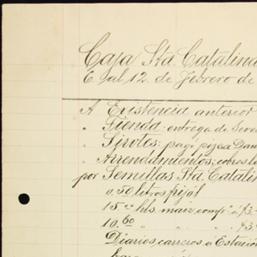 Caja Sta Catalina
E. Jal 12. de Febrero de
A Existencia anterior
" Tienda: entrega de
" Jirotes: pagó pajaa Dan
" Arrendamientos: cobros
por Semillas Sta Catalin
a 50 litros frijol
15 — hls. maiz compr
10.60 " " "
Diarios carreros a Estacion